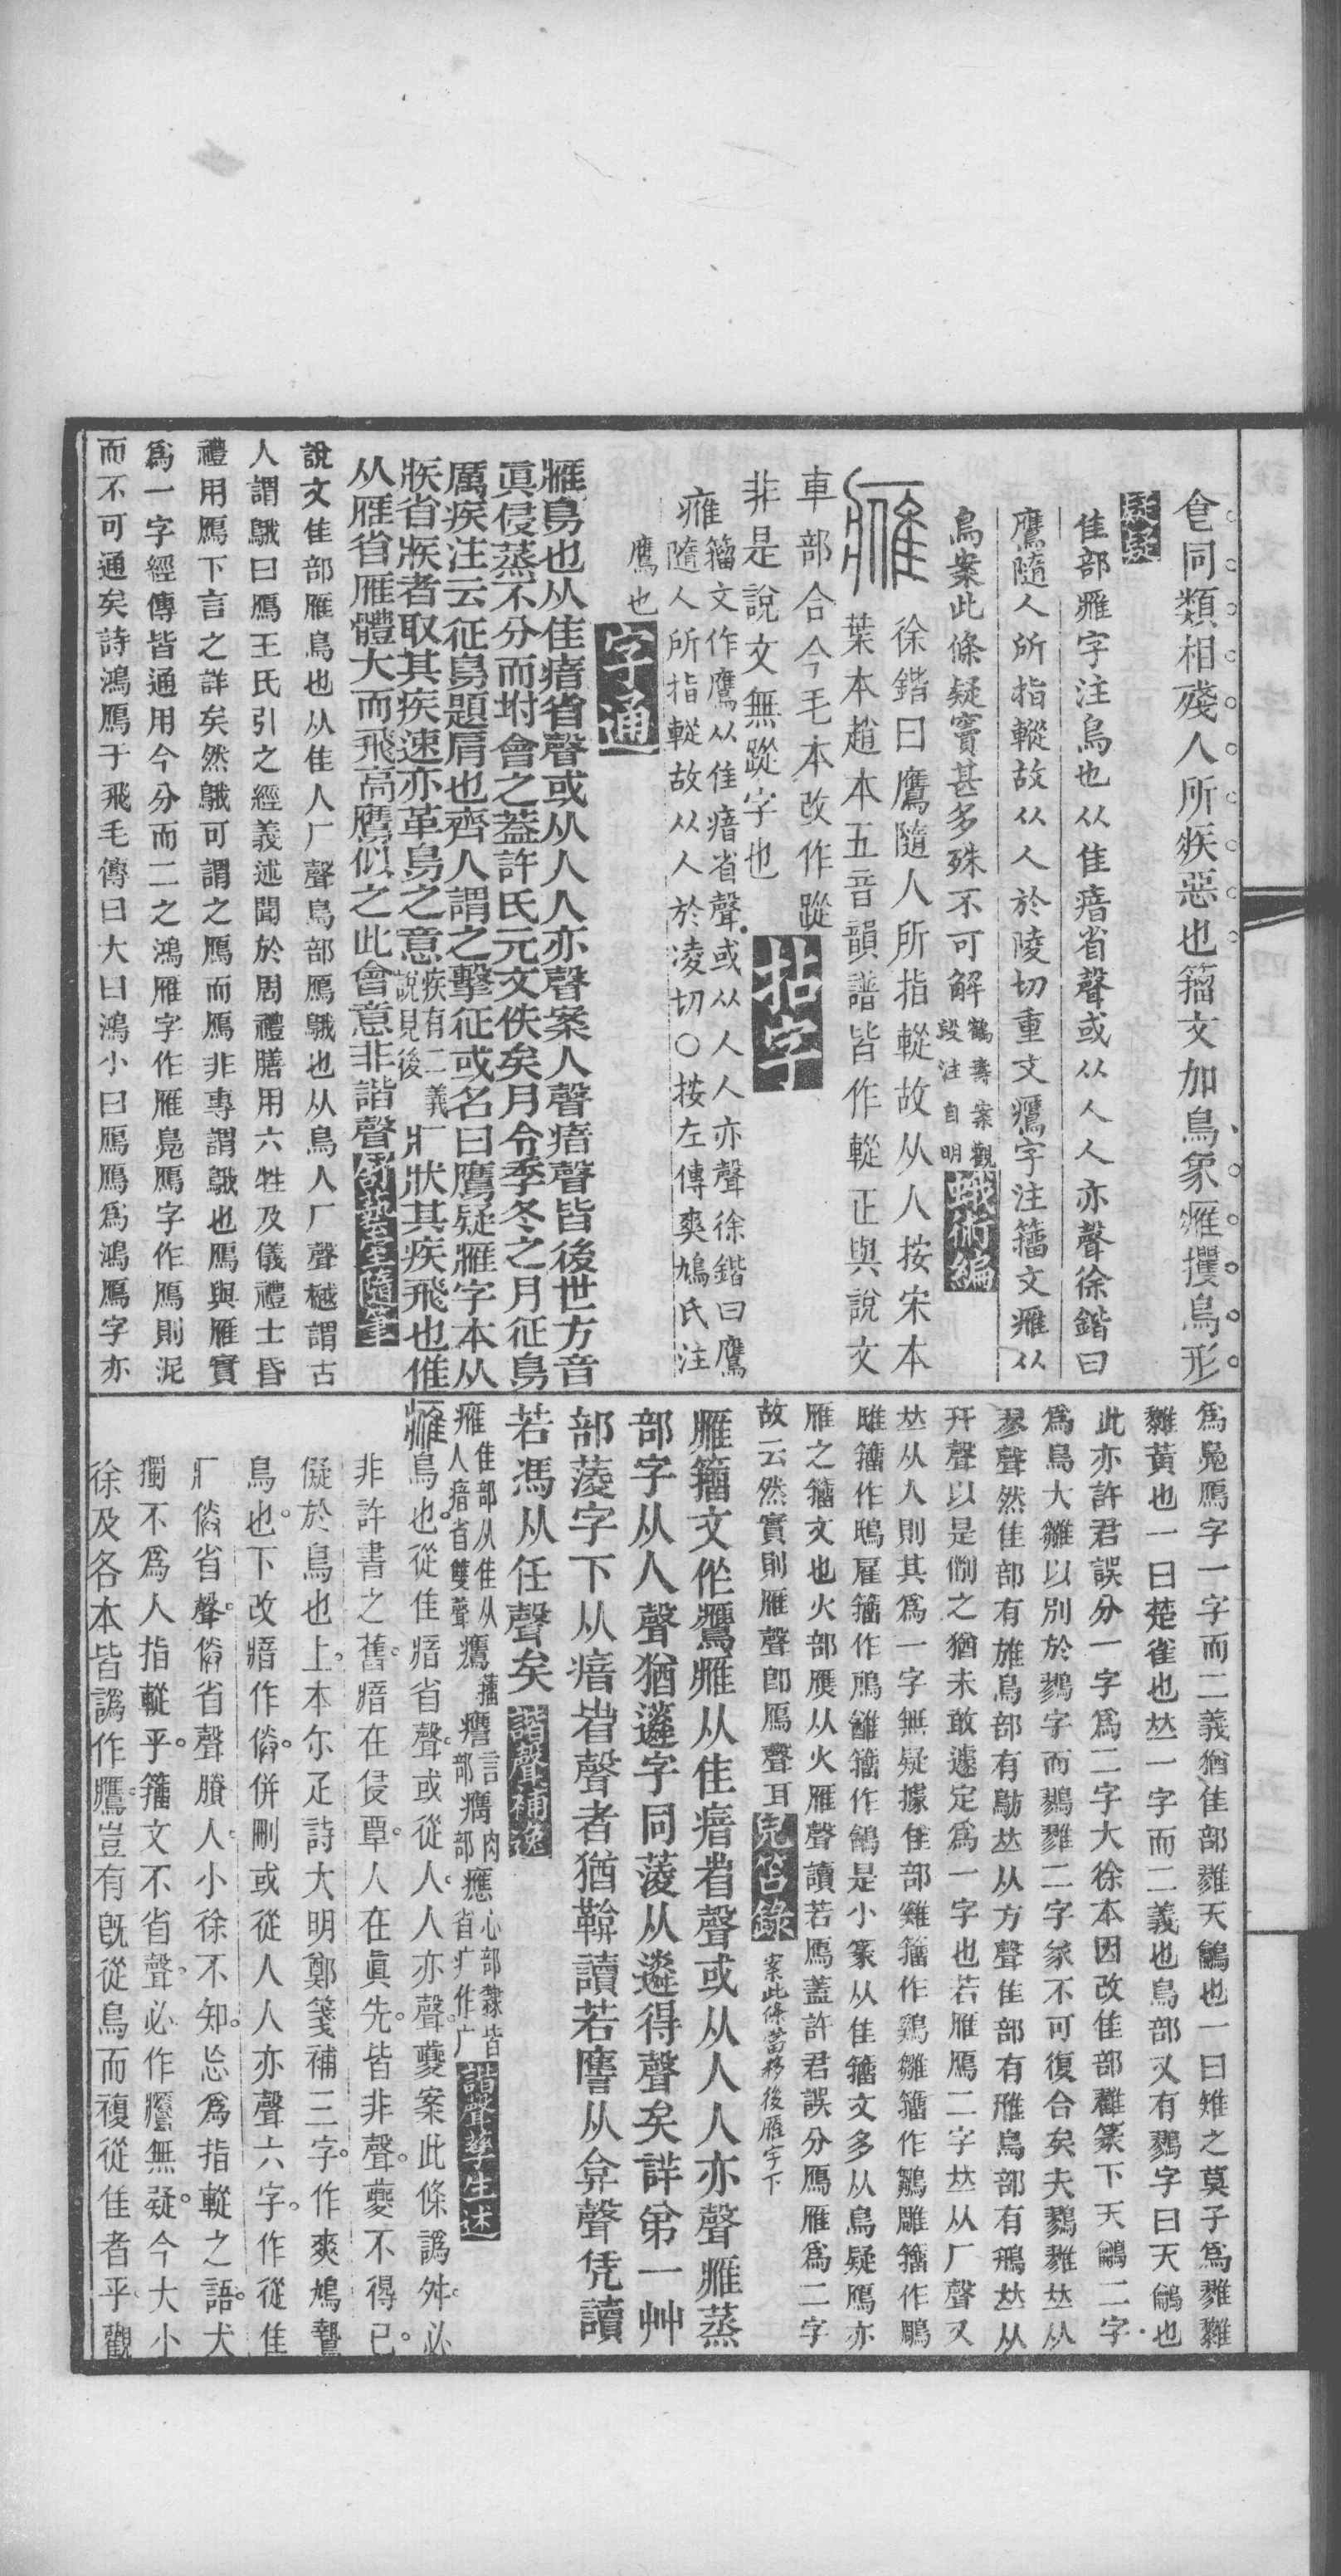 食同類相殘人所疾惡也籀文加鳥象䧹攫鳥形
疑疑
隹部䧹字注鳥也从隹瘖省聲或从人人亦聲徐鍇曰
鷹隨人所指䡮故从人於陵切重文鷹字注籀文䧹从
鳥案此條疑竇甚多殊不可解鶴壽案觀
段注自明蛾術編
徐鍇曰鷹隨人所指䡮故从人按宋本
葉本趙本五音韻譜皆作䡮正與說文
車部合今毛本改作蹤
非是說文無蹤字也拈字
䧹籀文作鷹从隹瘖省聲或从人人亦聲徐鍇曰鷹
隨人所指䡮故从人於凌切○按左傳爽鳩氏注
鷹也字通
䧹鳥也从隹瘖省聲或从人人亦聲案人聲瘖聲皆後世方音
眞侵蒸不分而坿會之蓋許氏元文佚矣月令季冬之月征鳥
厲疾注云征鳥題肩也齊人謂之擊征或名曰鷹疑䧹字本从
疾省疾者取其疾速亦革鳥之意疾有二義
說見後疒狀其疾飛也
从雁省雁體大而飛高鷹似之此會意非諧聲舒藝室隨筆
說文隹部雁鳥也从隹人厂聲鳥部鴈䳘也从鳥人厂聲樾謂古
人謂䳘曰鴈王氏引之經義述聞於周禮膳用六牲及儀禮士昏
禮用鴈下言之詳矣然䳘可謂之鴈而鴈非專謂䳘也鴈與雁實
爲一字經傳皆通用今分而二之鴻雁字作雁鳧鴈字作鴈則泥
而不可通矣詩鴻鴈于飛毛傳曰大曰鴻小曰鴈鴈爲鴻鴈字亦
爲鳧鴈字一字而二義猶隹部雡天鸙也一曰雉之莫子爲雡
黃也一曰楚雀也㚘一字而二義也鳥部又有鷚字曰天鸙也
此亦許君誤分一字爲二字大徐本因改隹部篆下天鸙二字
爲鳥大雛以別於鷚字而鷚雡二字不可復合矣夫鷚雡㚘从
翏聲然隹部有䲱鳥部有鴋㚘从方聲隹部有鳥部有鳽㚘从
幵聲以是例之猶未敢遽定爲一字也若雁鴈二字㚘从厂聲又
㚘从人則其爲一字無疑據隹部雞籀作鷄雛籀作鶵雕籀作鵰
雎籀作鴡雇籀作鳸雝籀作是小篆从隹籀文多从鳥疑鴈亦
雁之籀文也火部㷼从火雁聲讀若鴈蓋許君誤分鴈雁爲二字
故云然實則雁聲卽鴈聲耳兒笘錄案此條當移後雁字下
䧹籀文作鷹䧹从隹瘖省聲或从人人亦聲䧹蒸
部字从人聲猶遴字同从遴得聲矣詳弟一艸
部菱字下从瘖省聲者猶讀若譍从弇聲凭讀
若馮从任聲矣諧聲補逸
䧹隹部从隹从
人瘖省雙聲鷹籀譍言部肉部應心部隸皆
省疒作广諧聲孳生述
鳥也從隹瘖省聲或從人人亦聲夔案此條譌舛必
非許書之舊瘖在侵覃人在眞先皆非聲夔不得已
儗於鳥也上本尒疋詩大明鄭箋補三字作爽鳩鷙
鳥也下改瘖作併刪或從人人亦聲六字作從隹
疒省聲省聲人小徐不知忩爲指䡮之語犬
獨不爲人指䡮乎籀文不省聲必作無疑今大小
徐及各本皆譌作鷹豈有旣從鳥而複從隹者乎觀